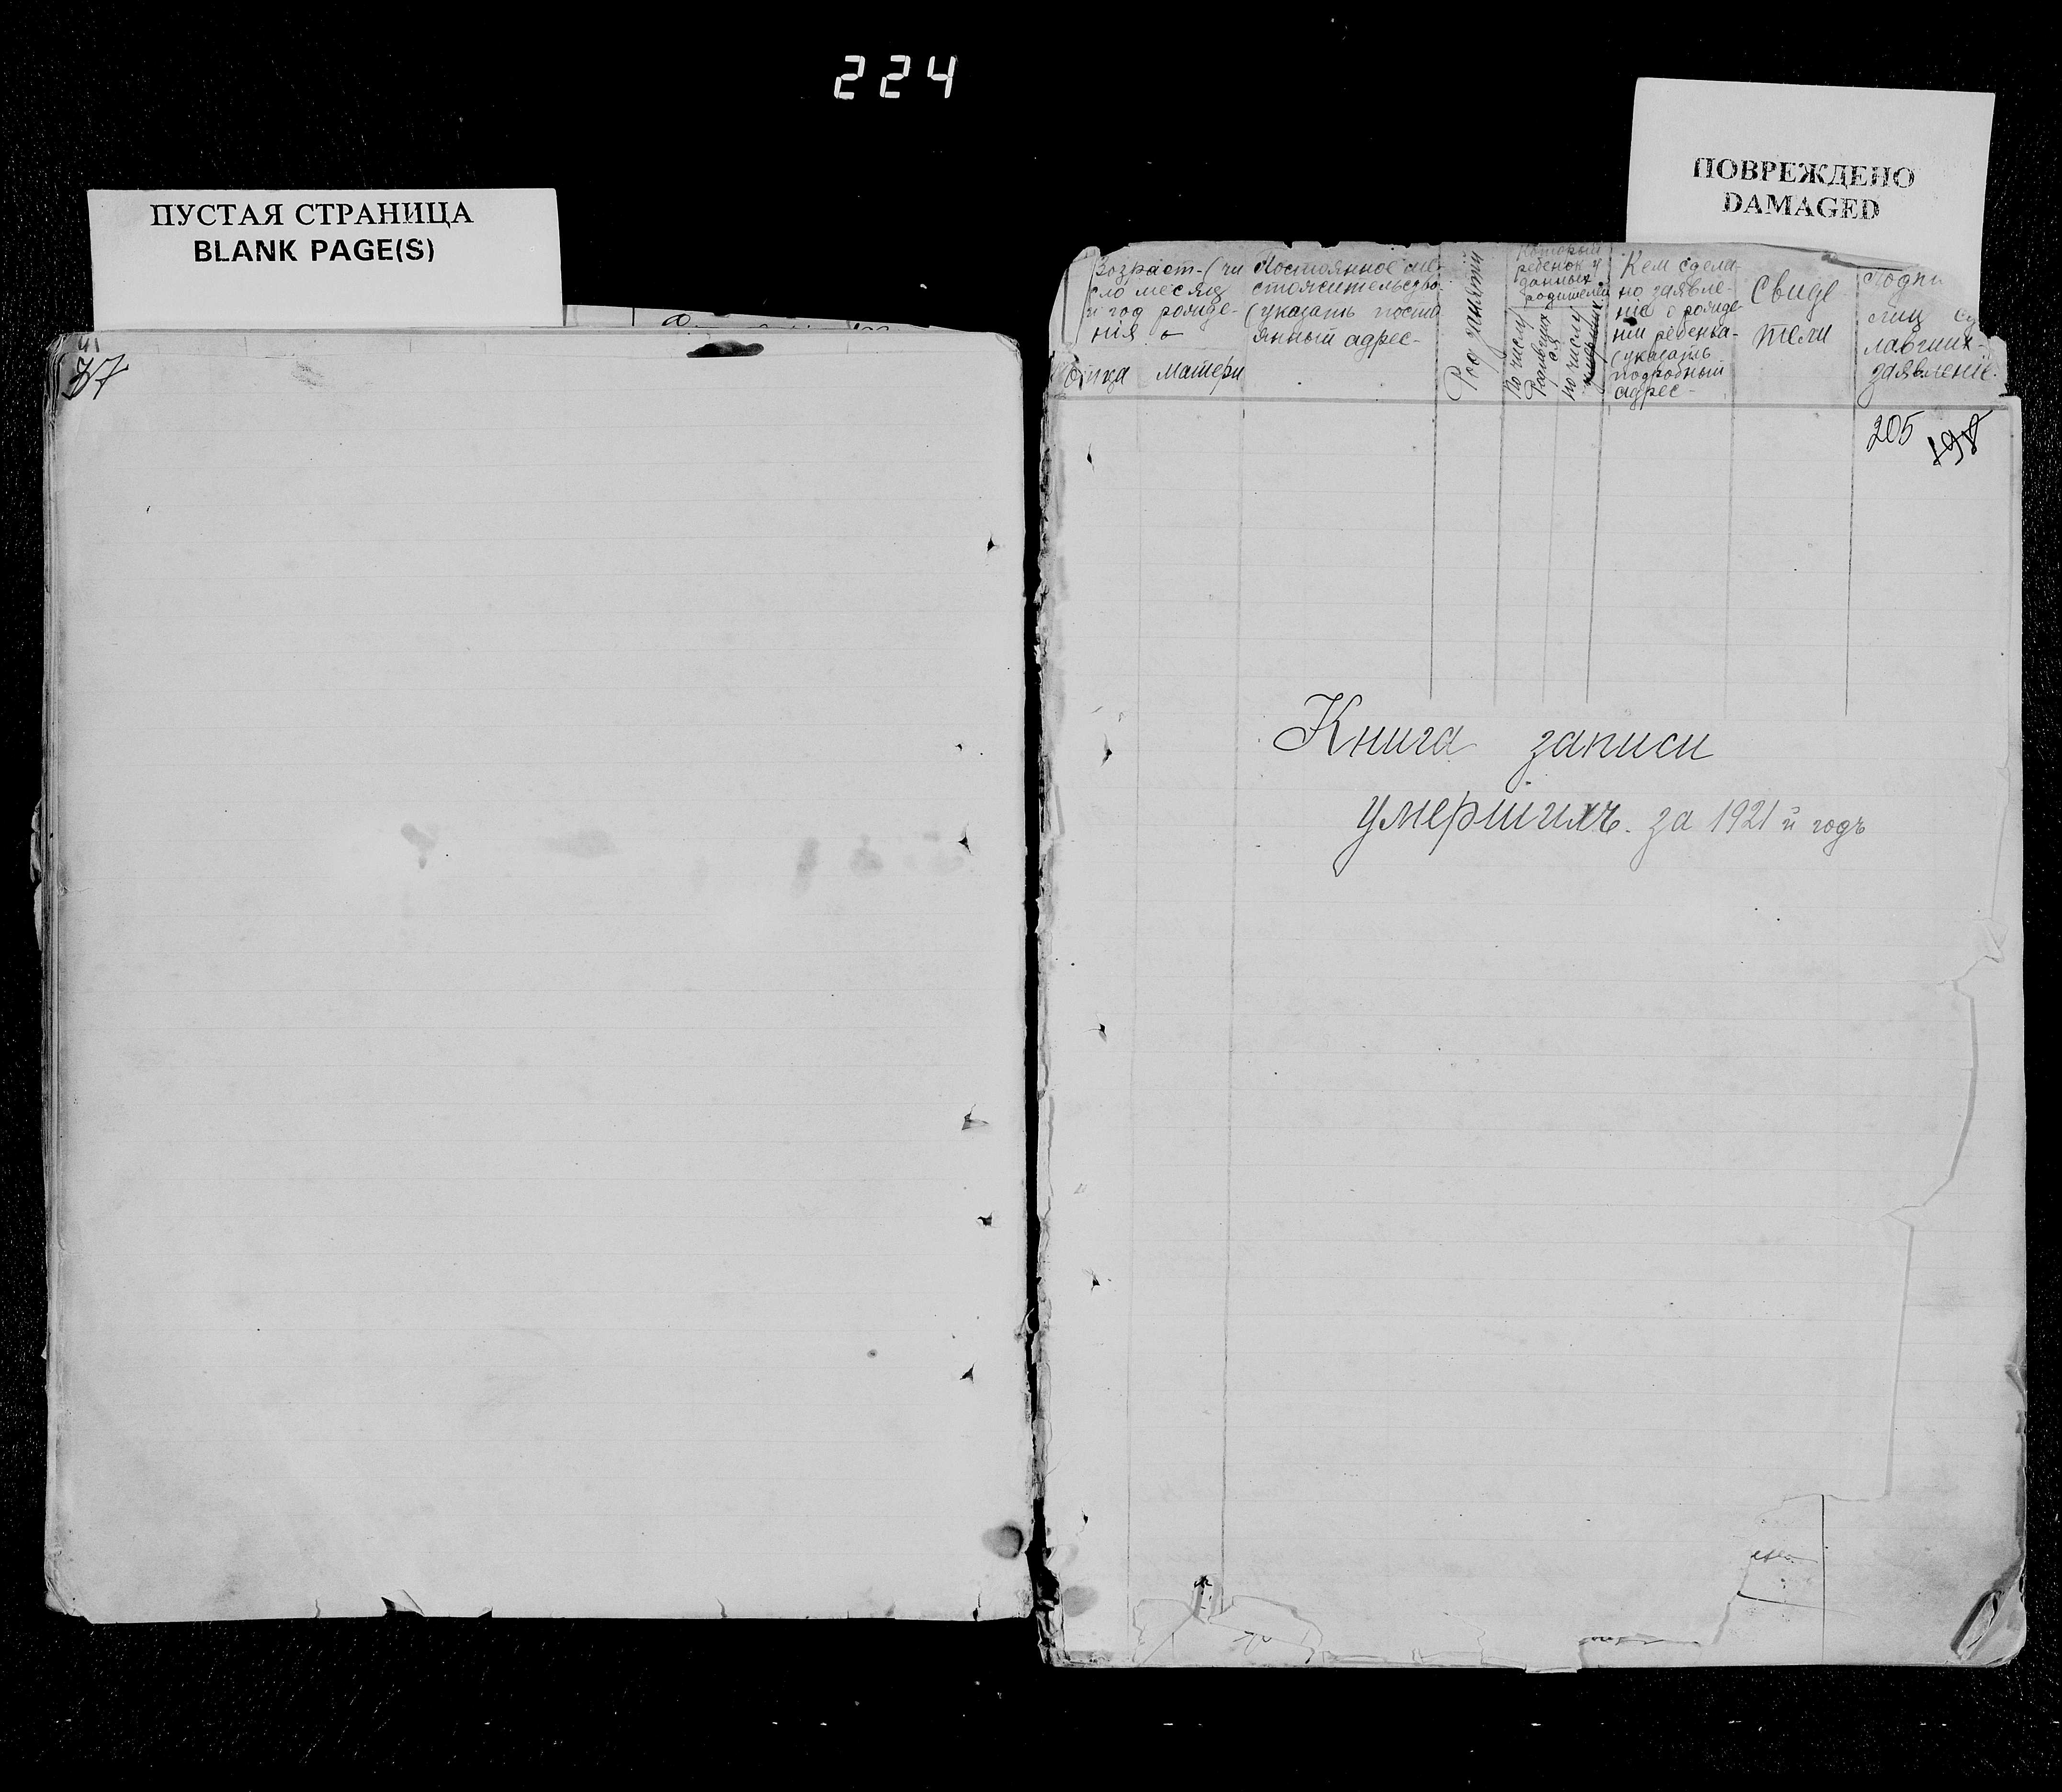 224
ПУСТАЯ СТРАНИЦА
BLANK PAGE(S)
37
ПОВРЕЖДЕНО
DAMAGED
Возраст-(чи
сло месяц
и год рожде-
нія
Отца Матери
Постоянное ме-
стожительство
(указать посто
янный адрес-
Род занятий
Который
ребенок у
данных
родителей
по числу
Родивших
ся
по числу
Кем сдела-
но заявле-
ніе о рожде
ніи ребенка-
(указать
подробный
адрес-
Свиде
тели
Подпи
лиц
лавших-
заявленіе.
205 198
Книга записи
умершихъ. за 1921 й годъ